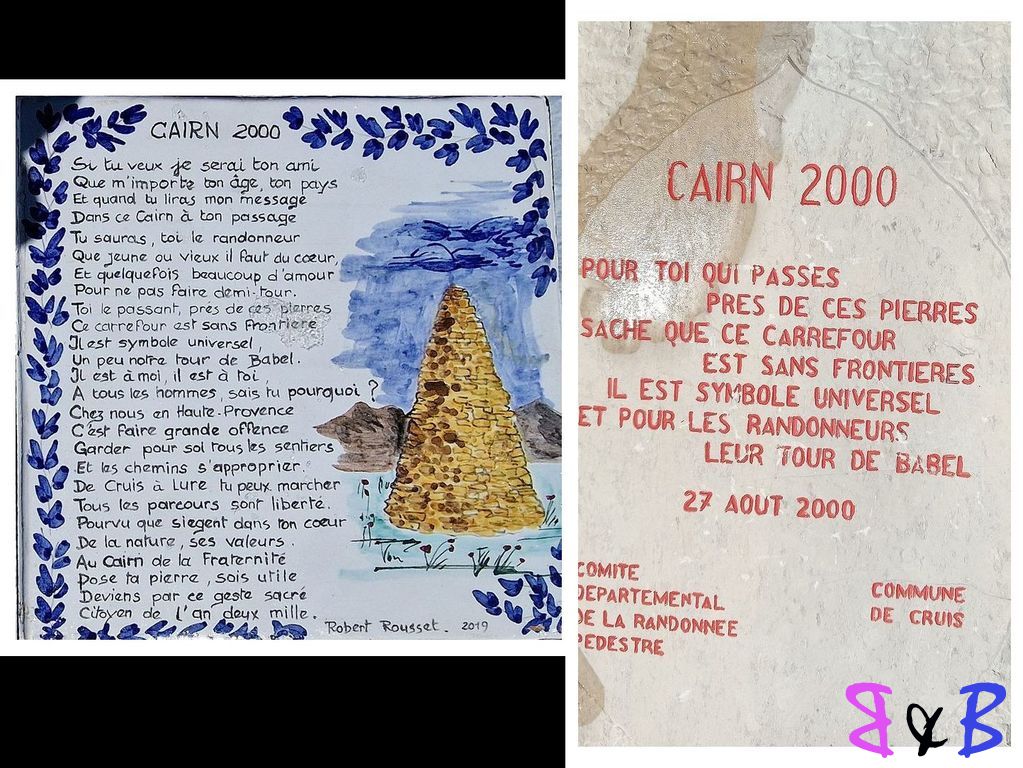 CAIRN 2000
Si tu veux je serai ton ami
Que m'importe ton âge, ton pays
Et quand tu liras mon message
Dans ce Cairn à ton passage
Tu sauras, toi le randonneur
Que jeune ou vieux il faut du cœur,
Et quelquefois beaucoup d'amour
Pour ne pas faire demi-tour.
Toi le passant, près de ces pierres
Ce carrefour est sans frontière
Il est symbole universel,
Un peu notre tour de Babel.
Il est à moi, il est à toi,
A tous les hommes, sais tu pourquoi ?
Chez nous en Haute-Provence
C'est faire grande offence
Garder pour soi tous les sentiers
Et les chemins s'approprier.
De Cruis à Lure tu peux marcher
Tous les parcours sont liberté.
Pourvu que siègent dans ton coeur
De la nature, ses valeurs.
Au Cairn de la Fraternité
Pose ta pierre, sois utile
Deviens par ce geste sacré
Citoyen de l'an deux mille.
Robert Rousset. 2019
CAIRN 2000
POUR TOI QUI PASSES
PRES DE CES PIERRES
SACHE QUE CE CARREFOUR
EST SANS FRONTIERES
IL EST SYMBOLE UNIVERSEL
ET POUR LES RANDONNEURS
LEUR TOUR DE BABEL
27 AOUT 2000
COMITE
DEPARTEMENTAL
DE LA RANDONNEE
PEDESTRE
COMMUNE
DE CRUIS
B & B